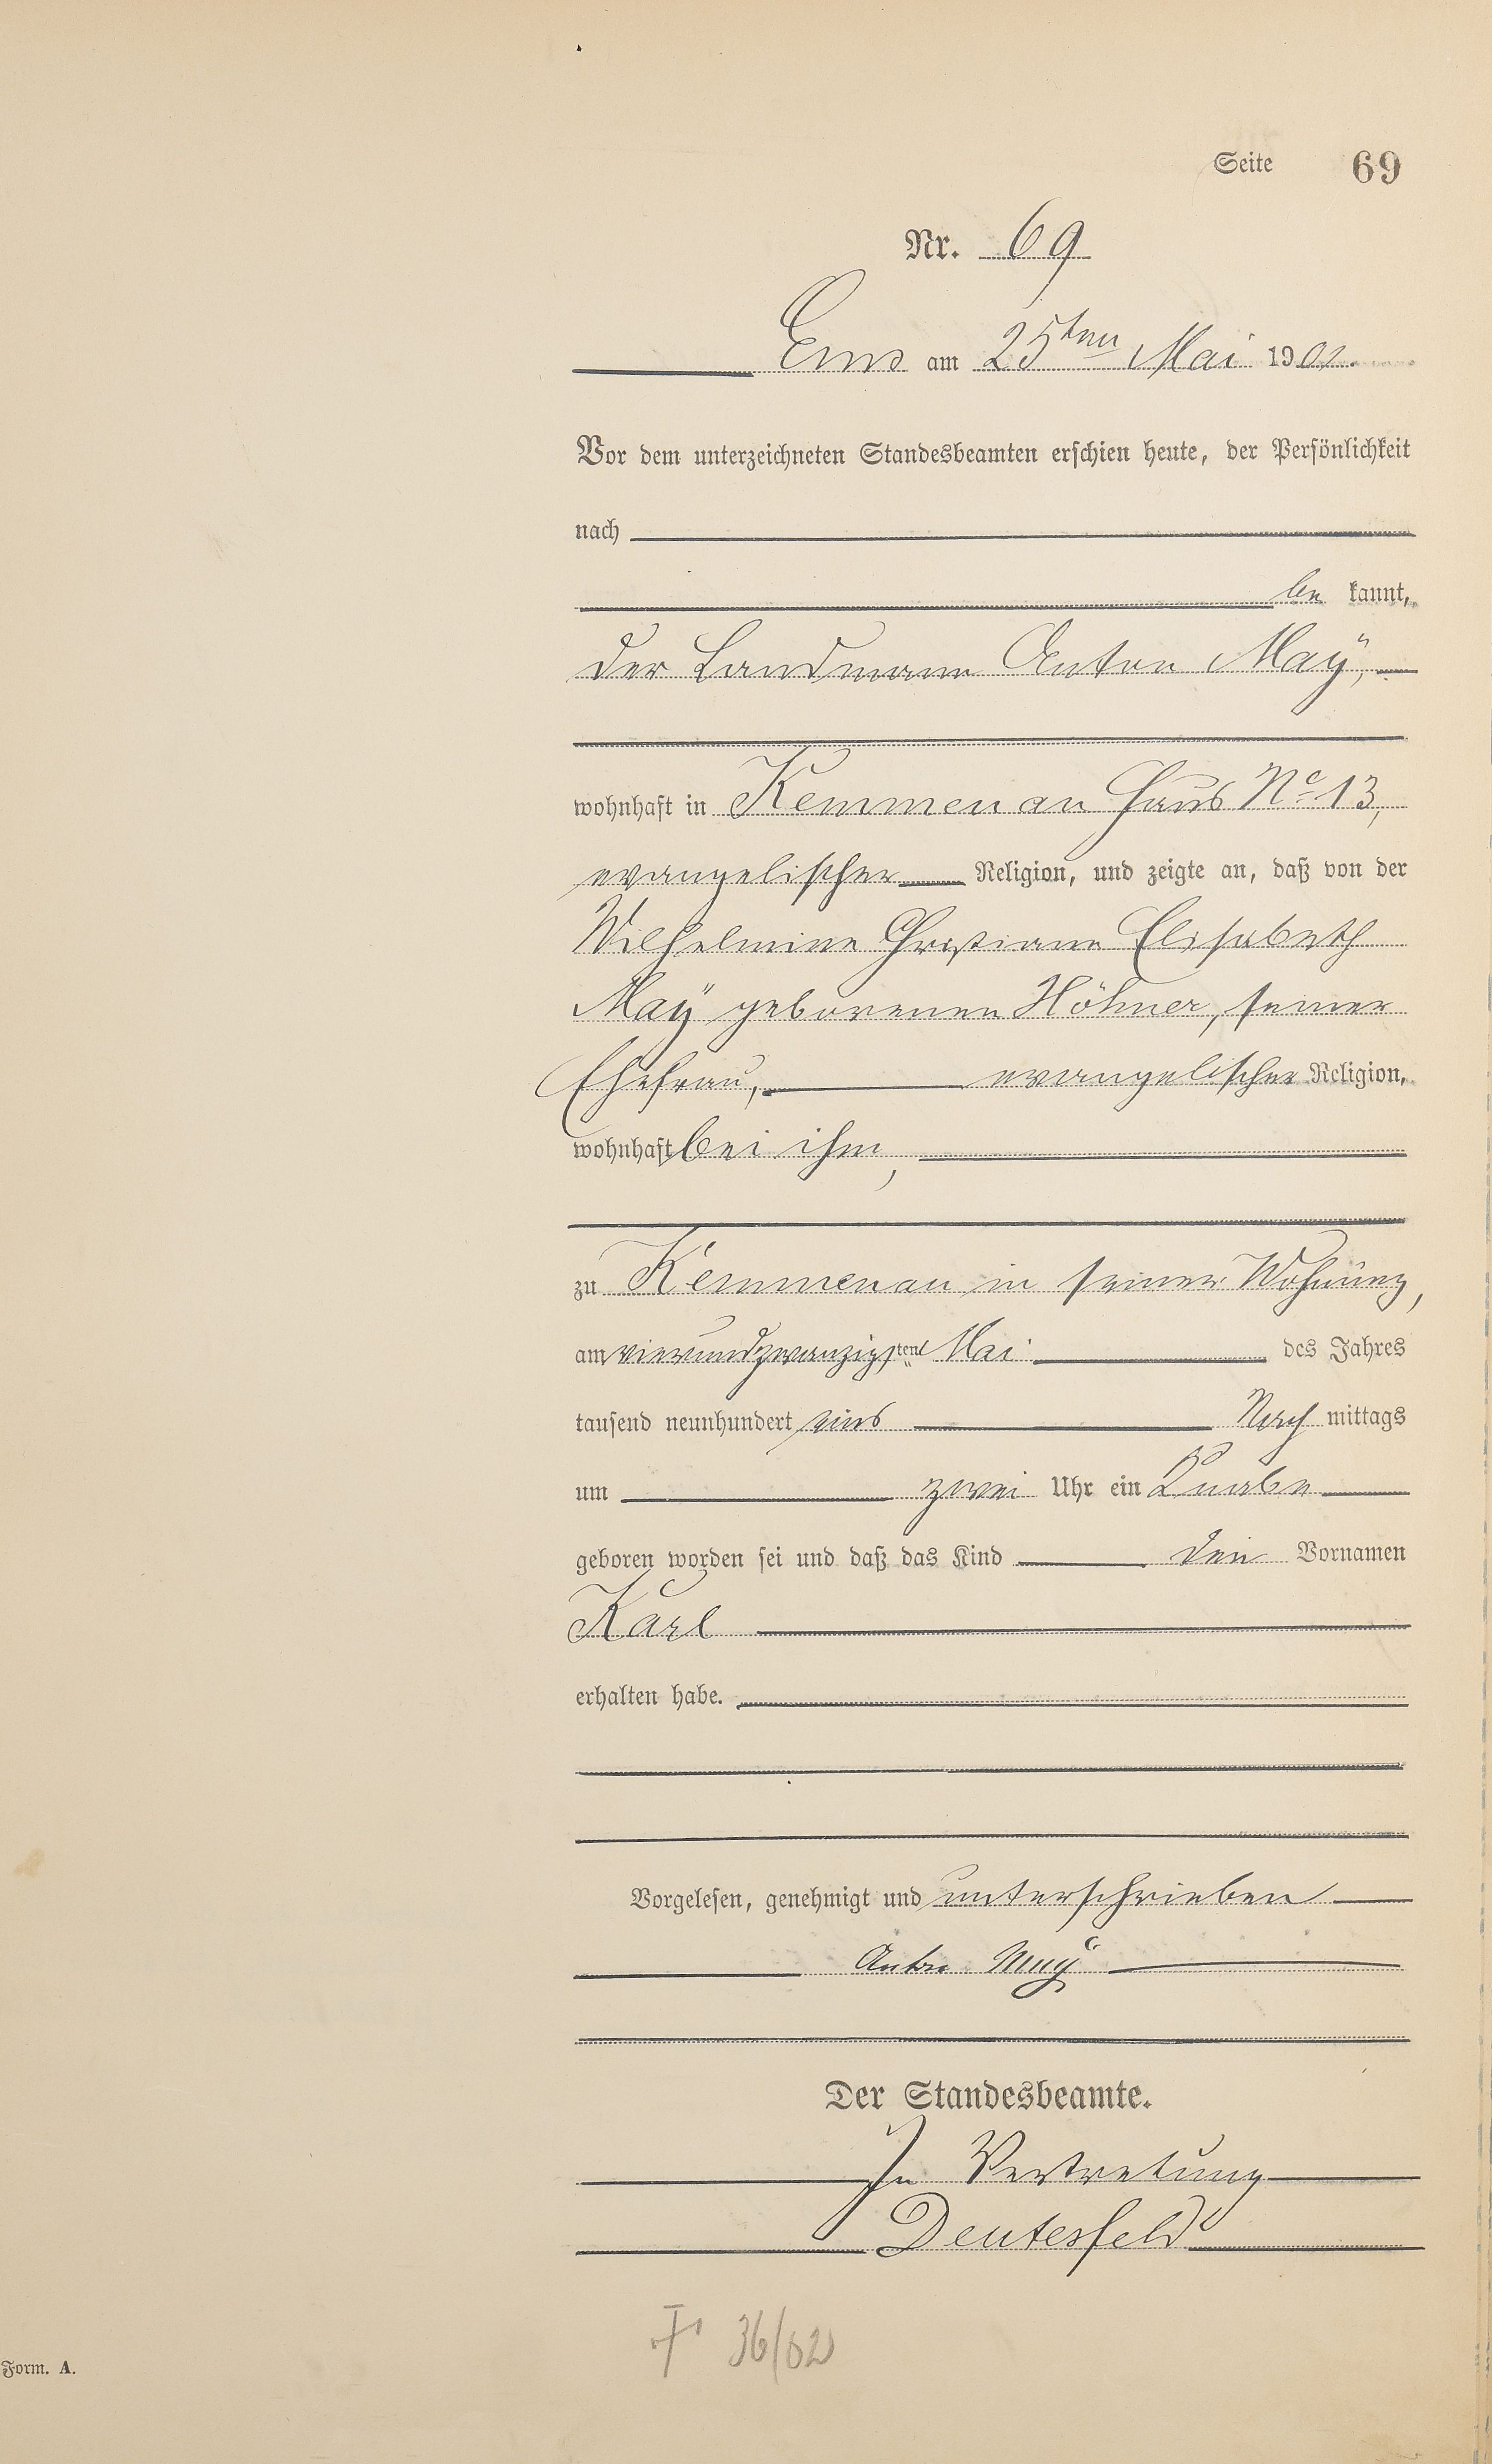 Seite 69
Nr. 69
Ems am 25ten Mai 1901.
Vor dem unterzeichneten Standesbeamten erschien heute, der Persönlichkeit
nach
be kannt,
der Landmann Anton Maÿ,
wohnhaft in Kemmenau Haus No 13,
evangelischer Religion, und zeigte an, daß von der
Wilhelmine Christiane Elisabeth
Maÿ geborenen Höhner, seiner
Ehefrau, evangelischer Religion,
wohnhaft bei ihm,
zu Kemmenau in seiner Wohnung,
am vierundzwanzigsten Mai des Jahres
tausend neunhundert eins Nach mittags
um zwei Uhr ein Knabe
geboren worden sei und daß das Kind den Vornamen
Karl
erhalten habe.
Vorgelesen, genehmigt und unterschrieben
Anton Maÿ
Der Standesbeamte.
In Vertretung
Deutesfeld
† 36/02
Form. A.